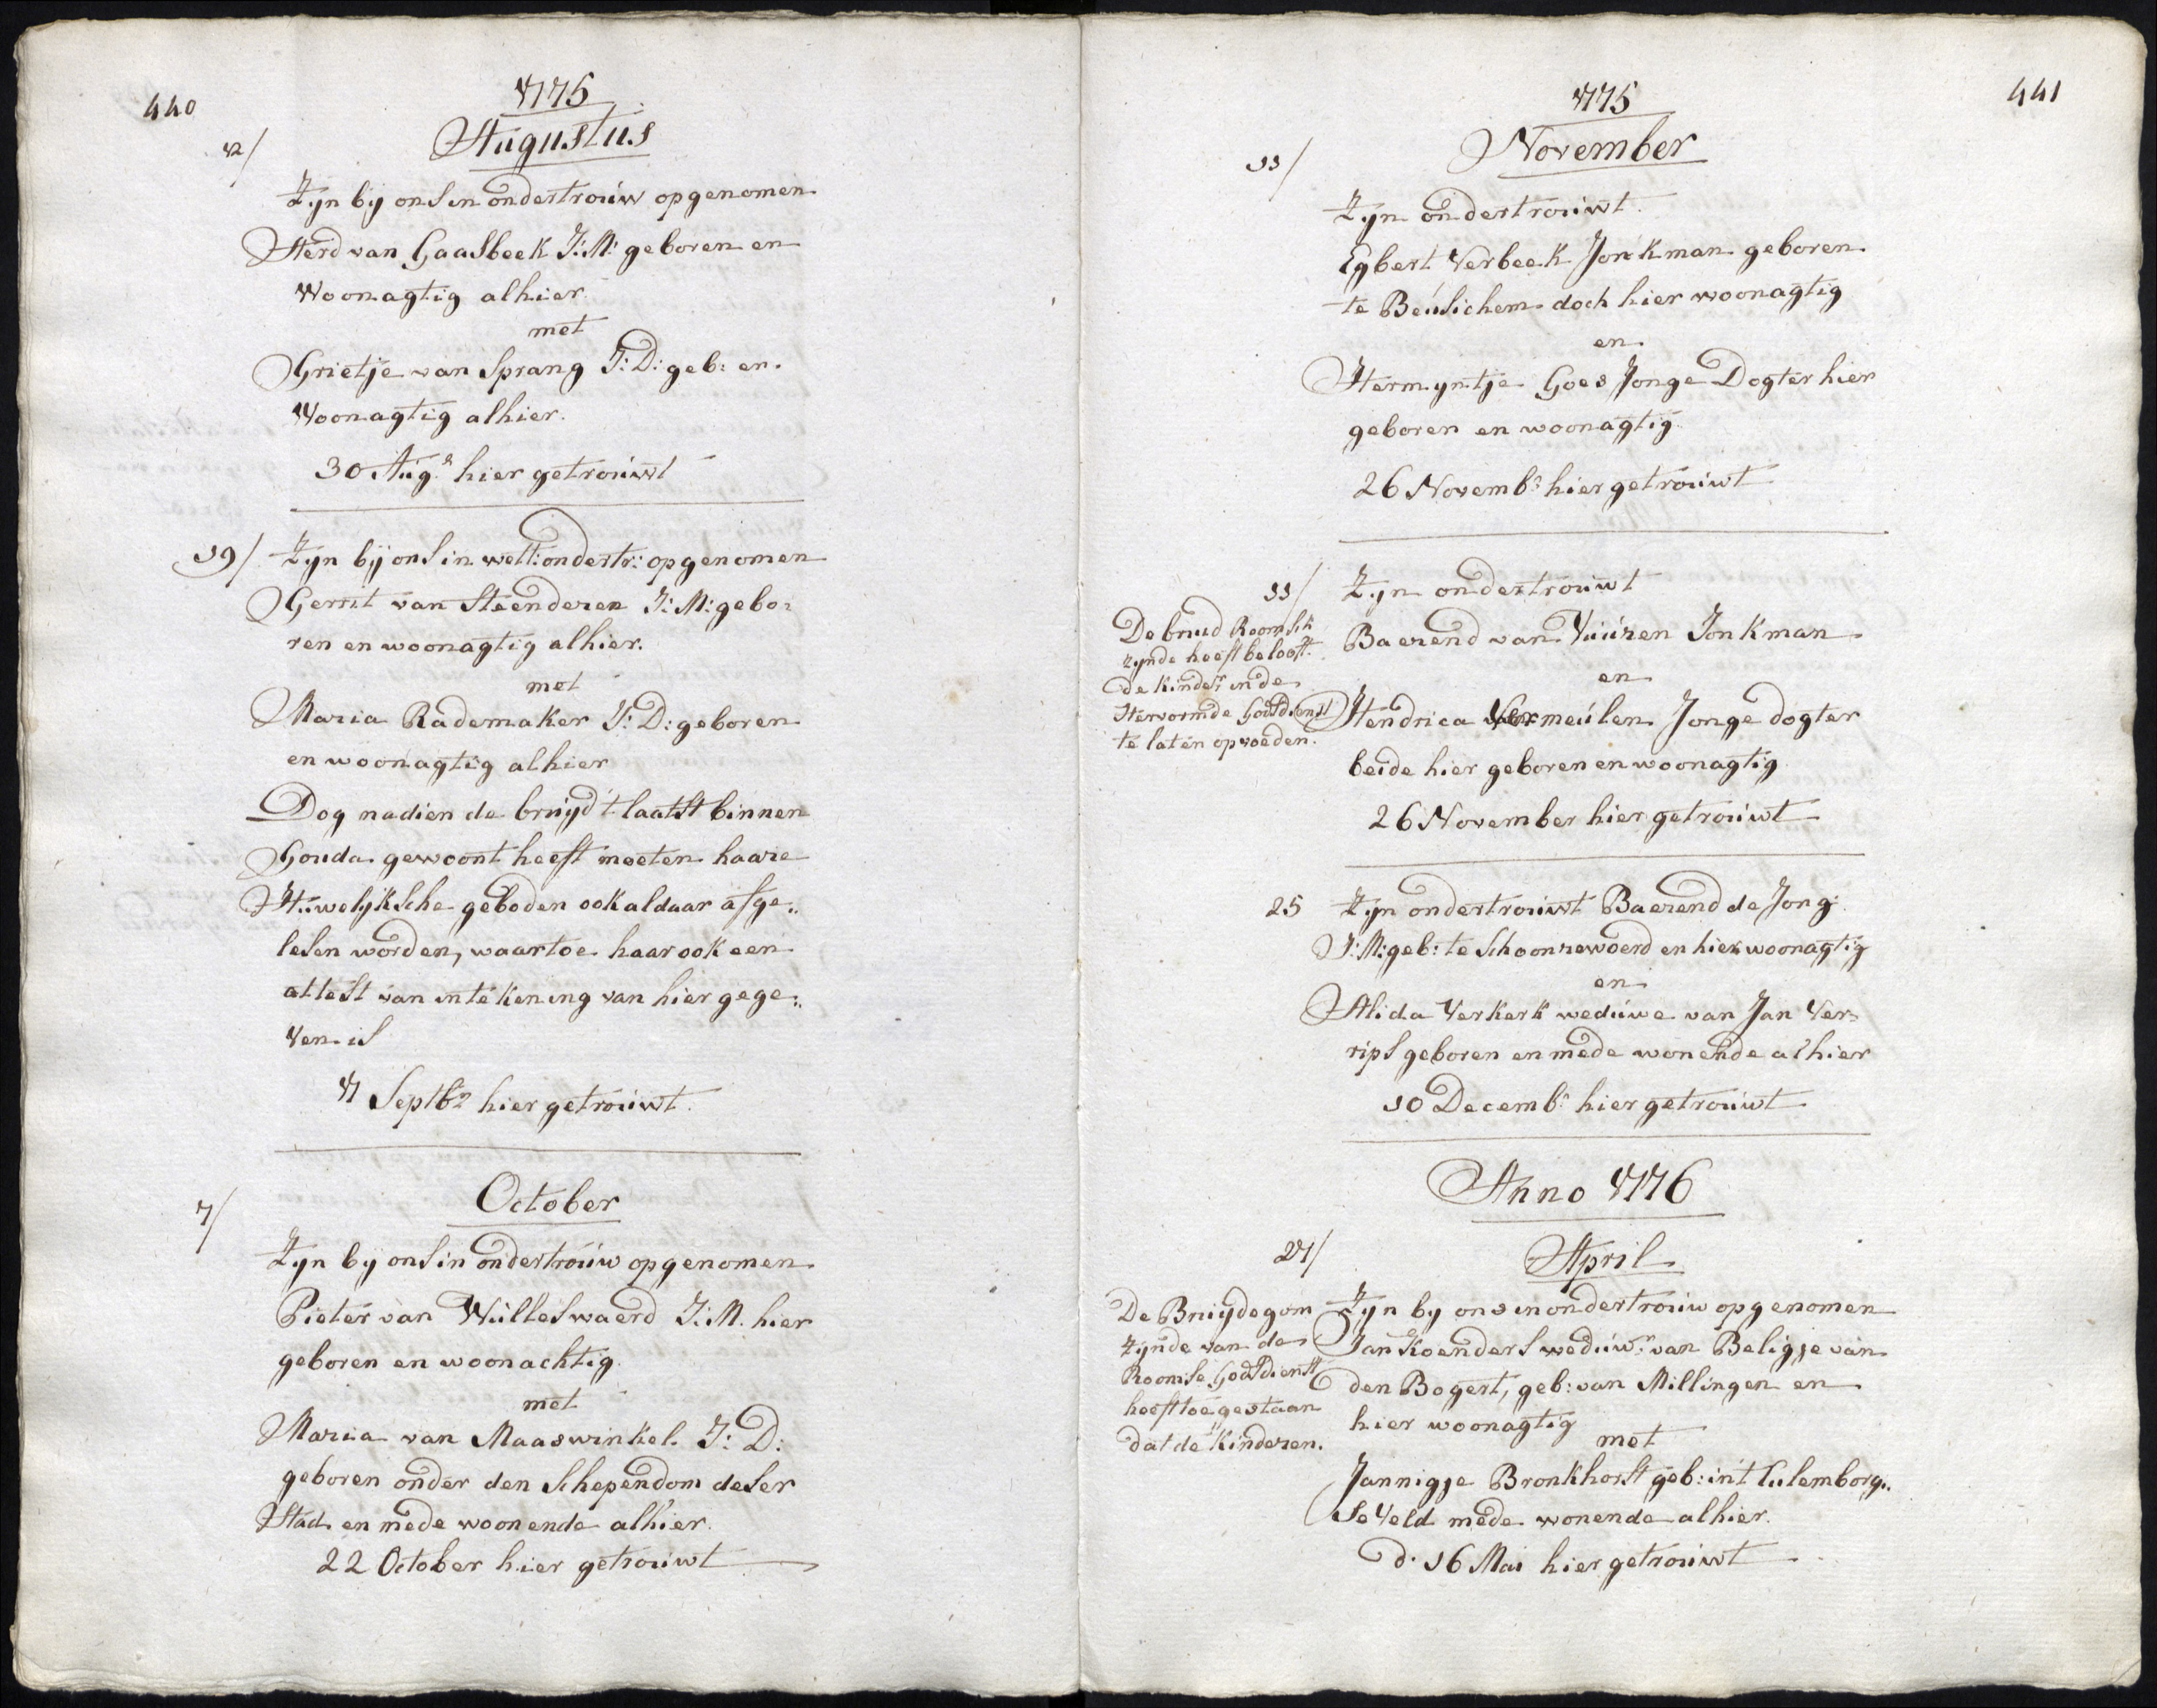 440
1775
Augustus
12/
Zyn bij ons in ondertrouw opgenomen
Aerd van Gaasbeek J: M: geboren en
Woonagtig alhier
met
Grietje van Sprang J: D: geb: en
Woonagtig alhier.
30 Augs hier getrouwt
19/ Zyn bij ons in wett: ondertr: opgenomen
Gerrit van Steenderen J: M: gebo:
ren en woonagtig alhier.
met
Maria Rademaker J: D: geboren
en woonagtig alhier
Dog nadien de bruyd 't laatst binnen
Gouda gewoont heeft moeten haare
Huwelijksche geboden ook aldaar afge:
lesen worden, waartoe haar ook een
attest van intekening van hier gege:
ven is
7 Septbr hier getrouwt.
October
7/
Zyn by ons in ondertrouw opgenomen
Pieter van Wulleswaerd J: M. hier
geboren en woonachtig
met
Maria van Maaswinkel J: D:
geboren onder den Schependom deser
Stad en mede woonende alhier.
22 October hier getrouwt
441
1775
November
11/
Zyn ondertrouwt
Egbert Verbeek Jonkman geboren
te Beusichem doch hier woonagtig
en
Hermyntje Goes Jonge Dogter hier
geboren en woonagtig
26 Novembr hier getrouwt
11/ Zyn ondertrouwt
De bruid Roomsch
zynde heeft belooft
de kinder in de
Hervormde Godsdienst
te laten opvoeden.
Baerend van Vuuren Jonkman
en
Hendrica Vermeulen Jonge dogter
beide hier geboren en woonagtig
26 November hier getrouwt
25 Zyn ondertrouwt Baerend de Jong
J: M: geb: te Schoonrewoerd en hier woonagtig
en
Alida Verkerk weduwe van Jan Ver=
rips geboren en mede wonende alhier
10 Decembr hier getrouwt
Anno 1776
27/ April
De Bruydegom
zynde van de
Roomse Godsdienst
heeft toegestaan
dat de kinderen.
Zyn by ons in ondertrouw opgenomen
Jan Koenders weduwr van Beligje van
den Bogert, geb: van Millingen en
hier woonagtig
met
Jannigje Bronkhorst geb: in 't Culemborg:
se Veld mede wonende alhier.
d. 16 Mai hier getrouwt